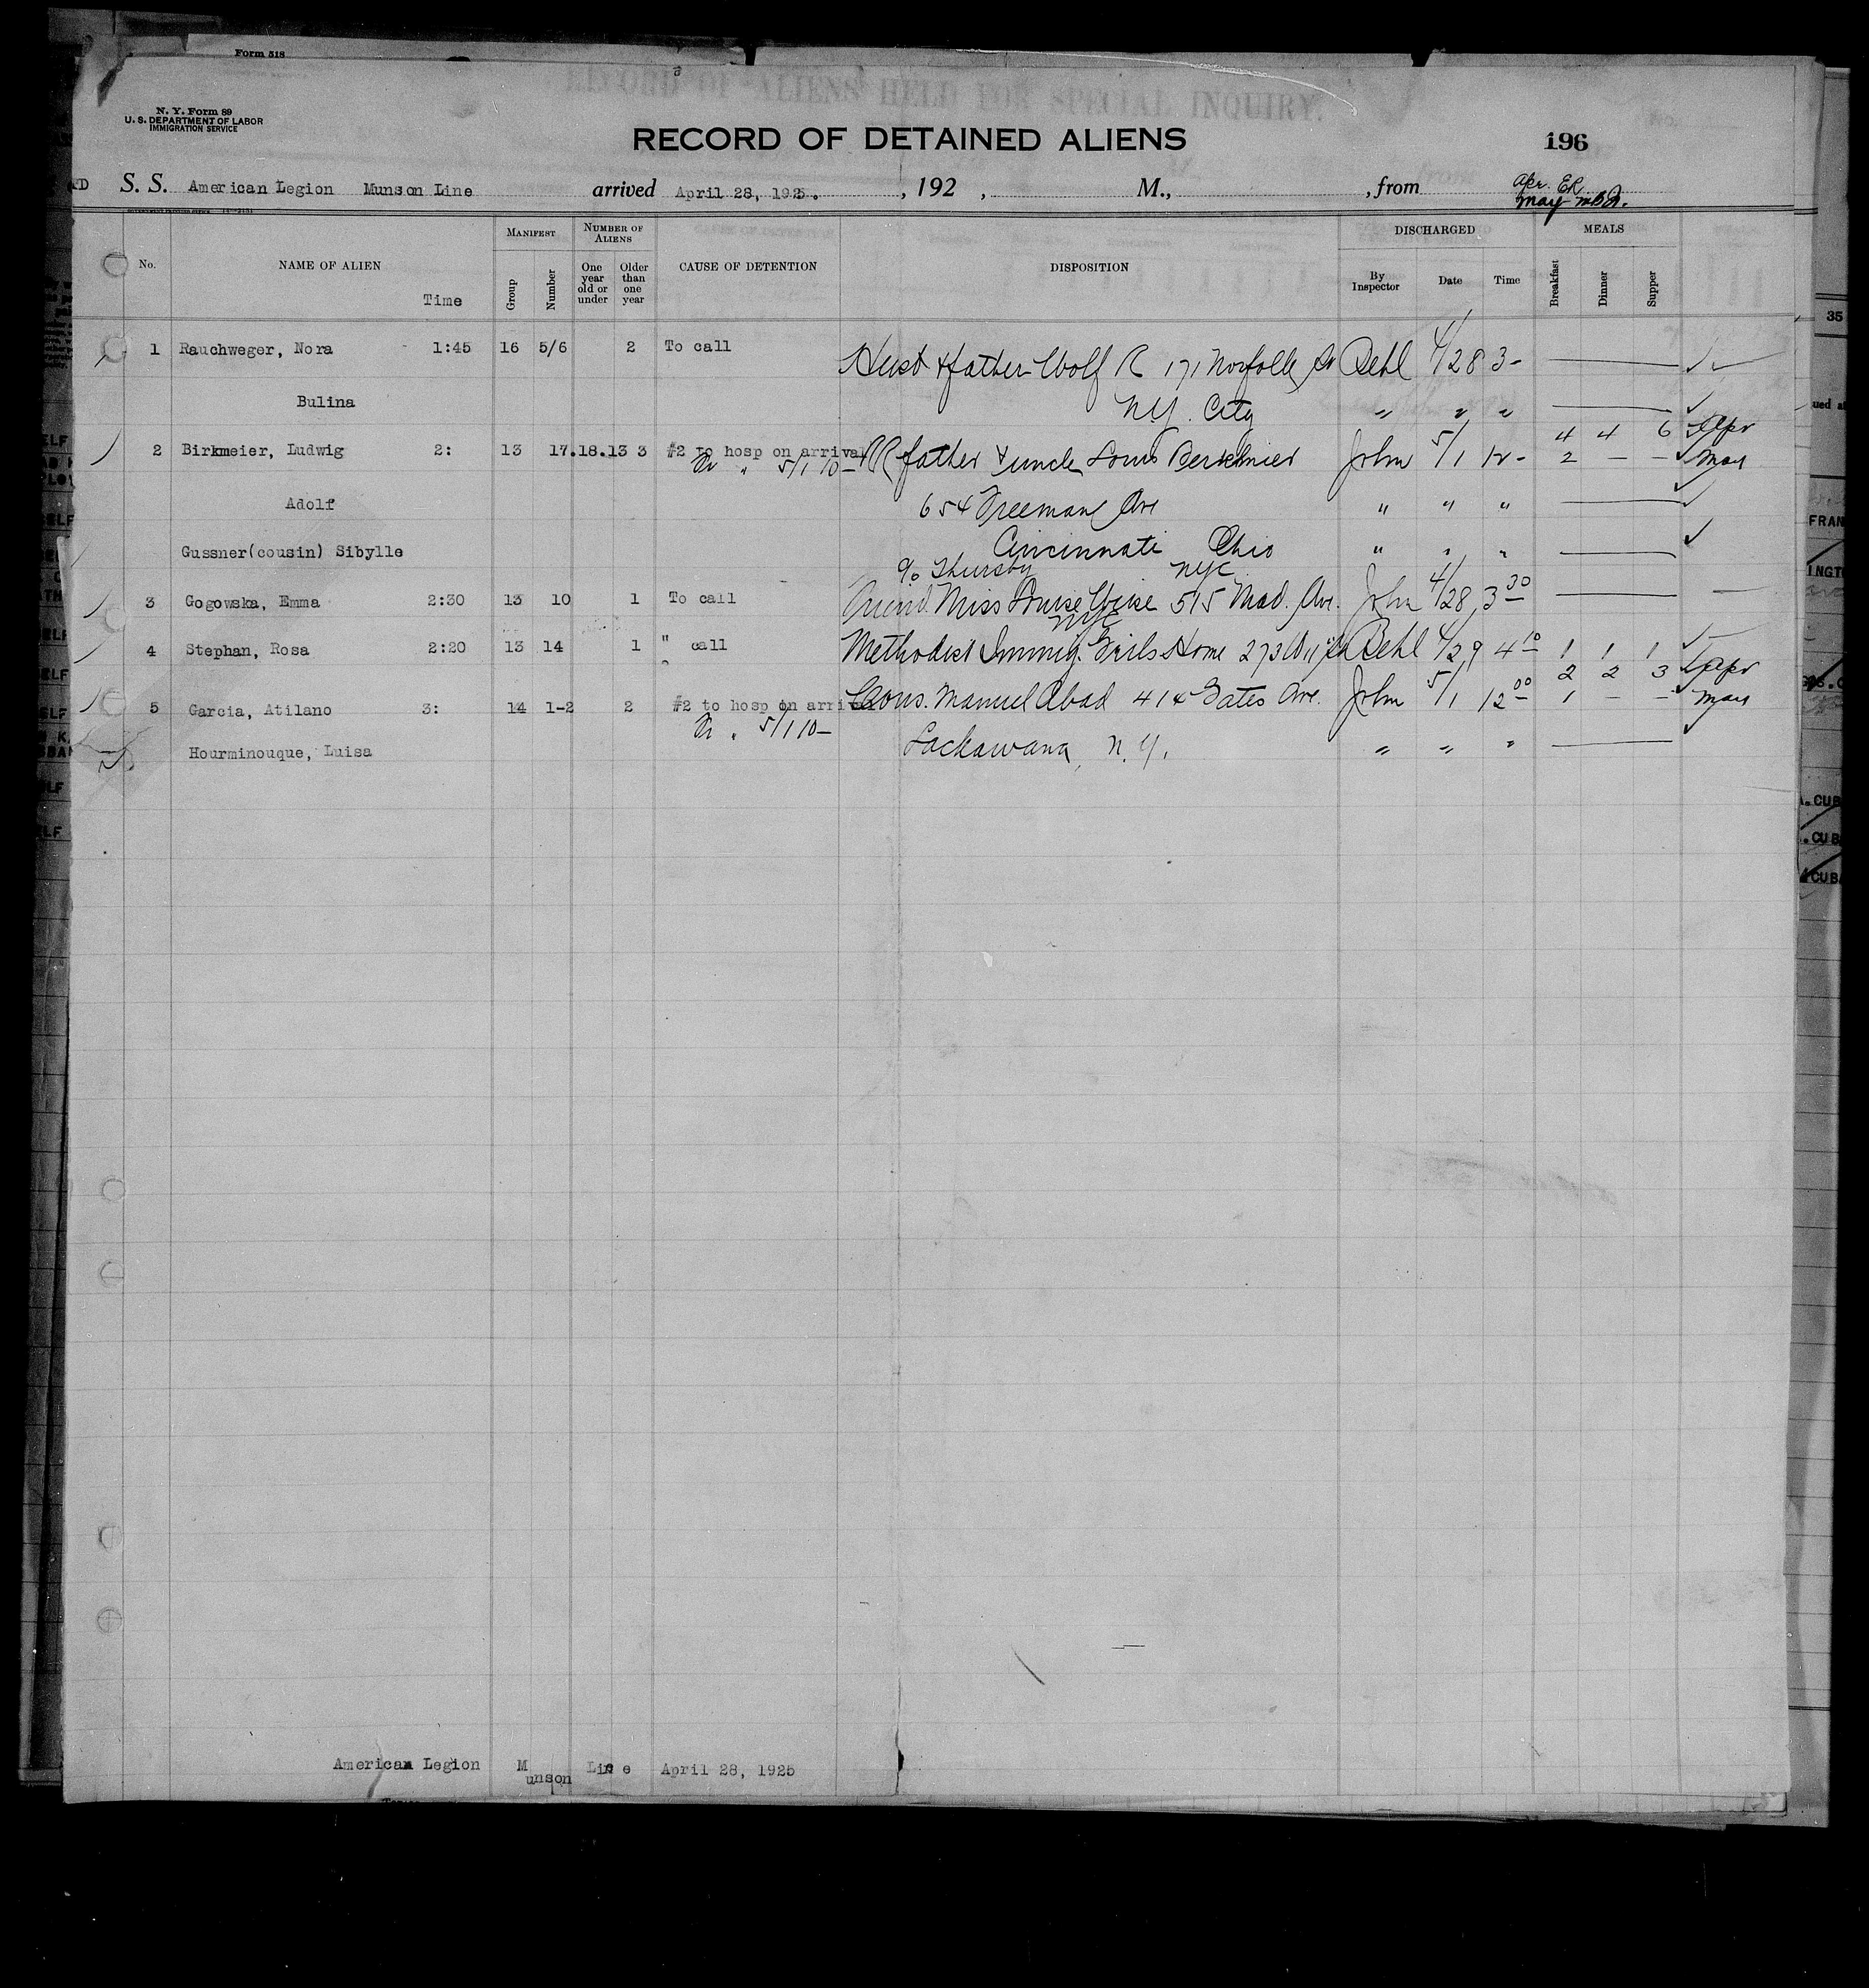 Form 518
N. Y. Form 89
U. S. DEPARTMENT OF LABOR
IMMIGRATION SERVICE
RECORD OF ALIENS HELD FOR SPECIAL INQUIRY.
RECORD OF DETAINED ALIENS
196
S. S. American Legion Munson Line arrived April 28, 1925. , 192 , M., , from
Apr. ER
May
No. NAME OF ALIEN Time MANIFEST Group Number NUMBER OF ALIENS One year old or under Older than one year CAUSE OF DETENTION DISPOSITION DISCHARGED By Inspector Date Time MEALS Breakfast Dinner Supper
1 Rauchweger, Nora 1:45 16 5/6 2 To call Husb & father Wolf R 171 Norfolk St Behl 4/28 3-
Bulina N.Y. City " " "
4 4 6 Apr
2 Birkmeier, Ludwig 2: 13 17.18.13 3 #2 to hosp on arrival RR father & uncle Louis Berkmier John 5/1 12- 2 — — May
Fr " 5/1 10-
Adolf 654 Freeman Ave " " "
Gussner(cousin) Sibylle Cincinnati Ohio " " "
% Thursby NYC
3 Gogowska, Emma 2:30 13 10 1 To call Friend Miss Louise Weise 515 Mad. Ave. John 4/28 3 30
NYC
4 Stephan, Rosa 2:20 13 14 1 " call Methodist Immig. Girls Home 273 W 11 St Behl 4/29 4 10 1 1 1
2 2 3 Apr
5 Garcia, Atilano 3: 14 1-2 2 #2 to hosp on arrival Cous. Manuel Abad 414 Gates Ave. John 5/1 12 00 1 — — May
Fr " 5/1 10-
Hourminouque, Luisa Lackawana, N.Y. " " "
American Legion Munson Line April 28, 1925
35
FRAN